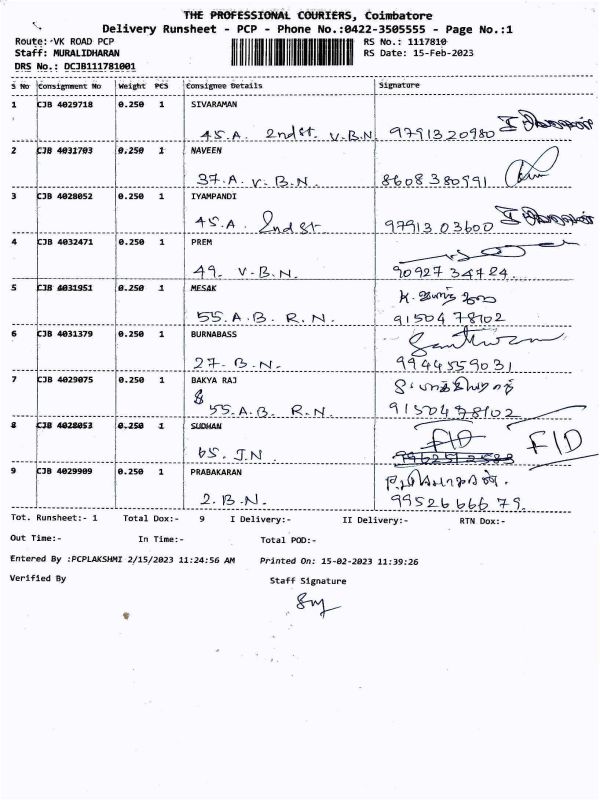 THE PROFESSIONAL COURIERS, Coimbatore
Delivery Runsheet - PCP - Phone No.:0422-3505555 - Page No.:1
Route: -VK ROAD PCP RS No.: 1117810
Staff: MURALIDHARAN RS Date: 15-Feb-2023
DRS No.: DCJB111781001
S No Consignment No Weight PCS Consignee Details Signature
1 CJB 4029718 0.250 1 SIVARAMAN
45.A. 2nd st. V.B.N. 9791320980
2 CJB 4031703 0.250 1 NAVEEN
37.A. V.B.N. 8608380991
3 CJB 4028052 0.250 1 IYAMPANDI
45.A. 2nd st 9791303600
4 CJB 4032471 0.250 1 PREM
49. V.B.N. 9092734784
5 CJB 4031951 0.250 1 MESAK
55.A.B. R.N. 9150478102
6 CJB 4031379 0.250 1 BURNABASS
27. B.N. 9944559031
7 CJB 4029075 0.250 1 BAKYA RAJ
55.A.B. R.N. 9150478102
8 CJB 4028053 0.250 1 SUDHAN FID FID
65. J.N
9 CJB 4029909 0.250 1 PRABAKARAN
2. B.N. 9952666679.
Tot. Runsheet:- 1 Total Dox:- 9 I Delivery:- II Delivery:- RTN Dox:-
Out Time:- In Time:- Total POD:-
Entered By :PCPLAKSHMI 2/15/2023 11:24:56 AM Printed On: 15-02-2023 11:39:26
Verified By Staff Signature